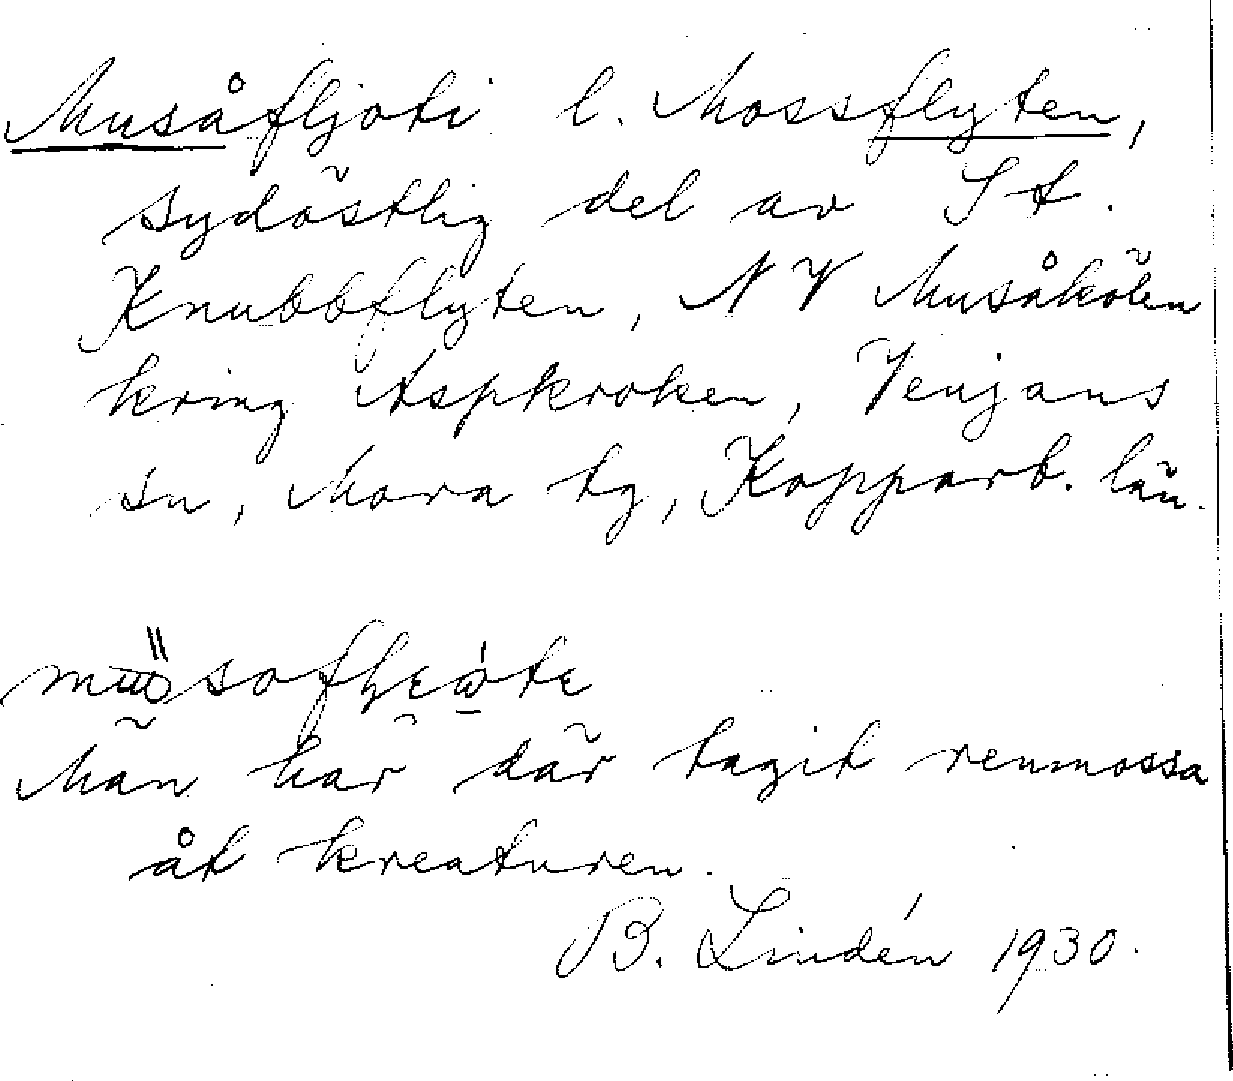 Musåfljoti l. Mossflyten,
sydöstlig del av St.
Knubbflyten, NV Musåkölen
kring Aspkroken, Venjans
sn, Mora tg, Kopparb. län.
Man har där tagit renmossa
åt kreaturen.
B. Lindén 1930.